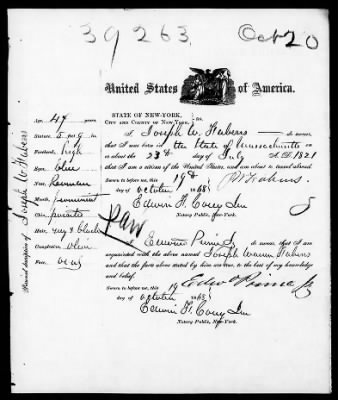 39263. Oct 20
United States of America.
STATE OF NEW-YORK,
CITY AND COUNTY OF NEW-YORK,
I, Joseph W. Fabens do swear
that I am born in the State of Massachusetts
on about the 23d day of July A.D. 1821
that I am a citizen of the United States, and am about to travel abroad
Sworn to before me, this 19th
day of October 1868
Notary Public, New-York.
I, do swear, that I am
acquainted with the above named Joseph Warren Fabens
and that the facts above stated by him are true, to the best of my knowledge
and belief.
Sworn to before me, this 19
day of October 1868
Notary Public, New-York.
Personal description of Joseph W Fabens
Age, 47 years
Stature, 5 ft 9 in
Forehead, high
Eyes,
Nose, Roman
Mouth, prominent
Chin,
Hair, grey & black
Complexion, olive
Face, oval